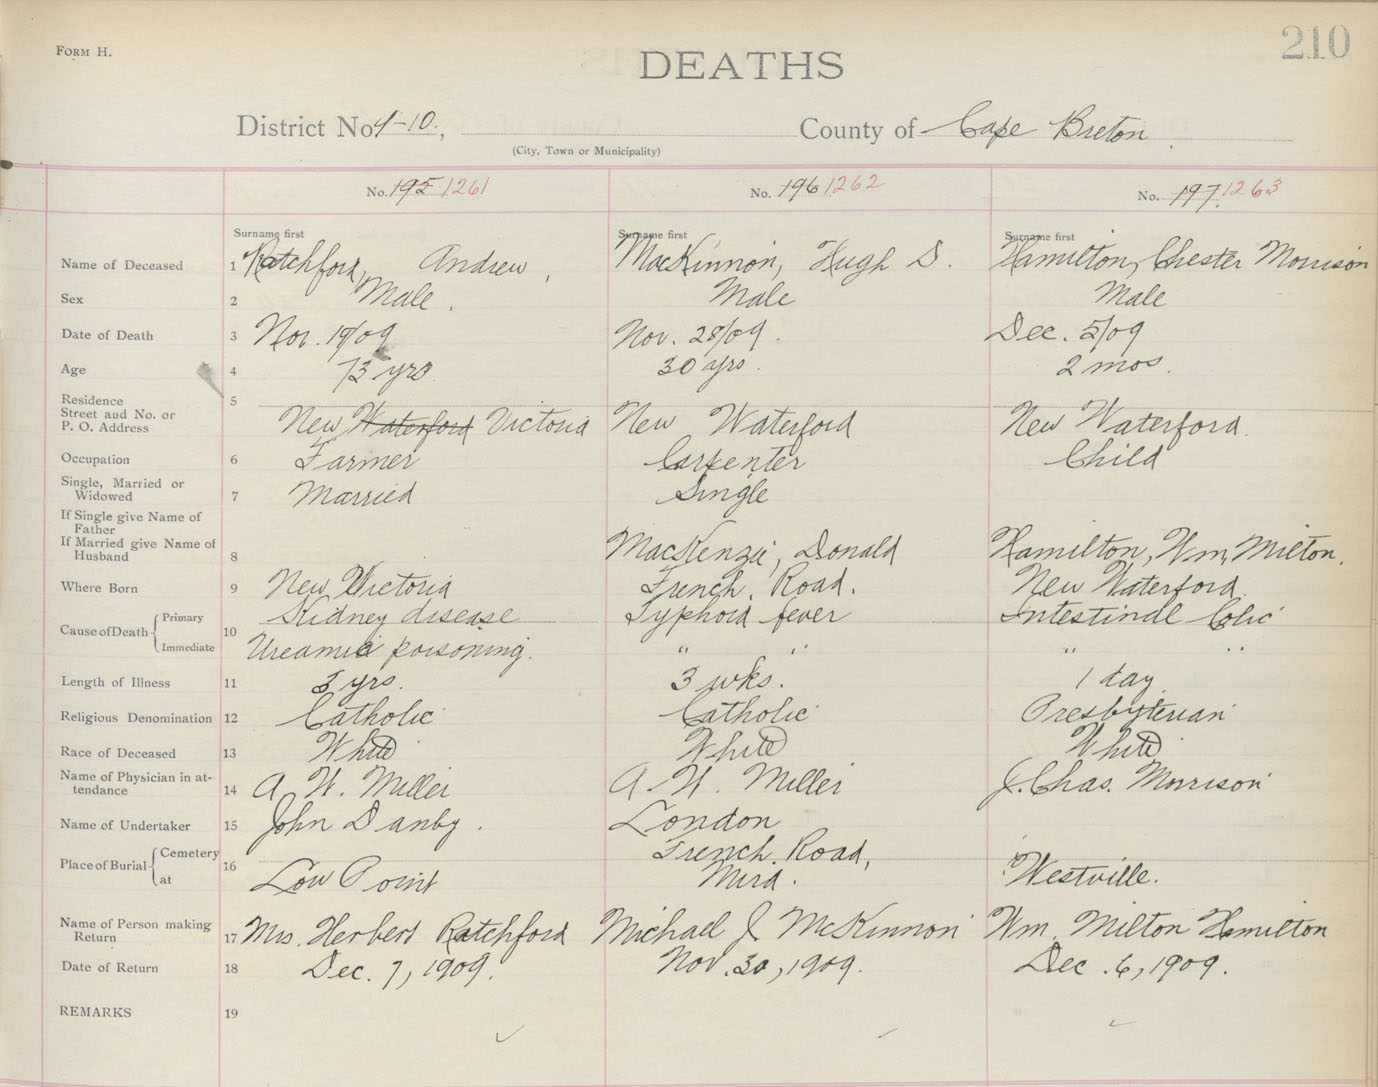 FORM H.
210
DEATHS
District No. 4-10., County of Cape Breton
(City, Town or Municipality)
No. 195 1261 No. 196 1262 No. 197. 1263
Surname first Surname first Surname first
Name of Deceased 1 Ratchford, Andrew, MacKinnon, Hugh D. Hamilton, Chester Morrison
Sex 2 Male. Male Male
Date of Death 3 Nov. 19/09 Nov. 28/09. Dec. 5/09
Age 4 73 yrs 30 yrs. 2 mos.
Residence 5
Street and No. or
P. O. Address New Waterford Victoria New Waterford New Waterford.
Occupation 6 Farmer Carpenter Child
Single, Married or
Widowed 7 Married Single
If Single give Name of
Father
If Married give Name of
Husband 8 MacKenzie, Donald Hamilton, Wm, Milton.
Where Born 9 New Victoria French Road. New Waterford.
Cause of Death { Primary Kidney disease Typhoid fever Intestinal Colic
10 Immediate Ureamic poisoning. " " " "
Length of Illness 11 3 yrs. 3 wks. 1 day
Religious Denomination 12 Catholic Catholic Presbyterian
Race of Deceased 13 White White White
Name of Physician in at-
tendance 14 A. W. Miller A. W. Miller J. Chas. Morrison
Name of Undertaker 15 John Danby. London
Place of Burial { Cemetery 16 French Road,
at Low Point Mira. Westville.
Name of Person making
Return 17 Mrs. Herbert Ratchford Michael J McKinnon Wm. Milton Hamilton
Date of Return 18 Dec. 7, 1909. Nov. 30, 1909. Dec. 6, 1909.
REMARKS 19